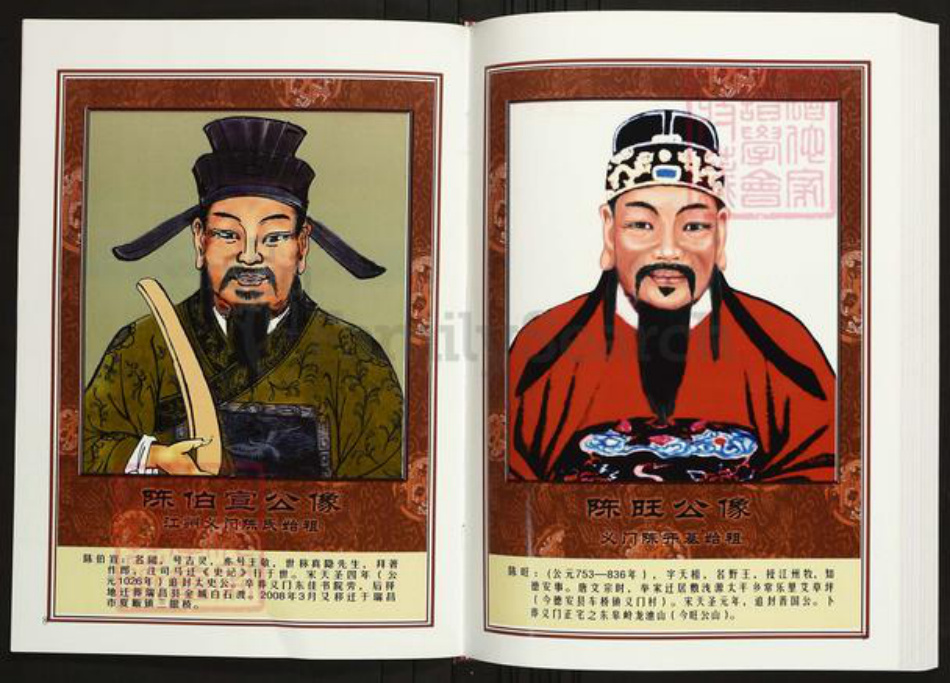 陈伯宣公像
江州义门陈氏始祖
陈伯宣：名阔，号古灵，亦号王敬，世称真隐先生，拜著
作郎，注司马迁《史记》行于世。宋天圣四年（公
元1026年）追封太史公。卒葬义门东佳书院旁，后拜
地迁葬瑞昌县金城白石渡。2008年3月又移迁于瑞昌
市夏畈镇三眼桥。
陈旺公像
义门陈开基始祖
陈旺：（公元753—836年），字天相，名野王，授江州牧，知
德安事。唐文宗时，举家迁居敷浅源太平乡常乐里艾草坪
（今德安县车桥镇义门村）。宋天圣元年，追封晋国公。卜
葬义门正宅之东皋岭龙池山（今旺公山）。
FamilySearch
譜學會